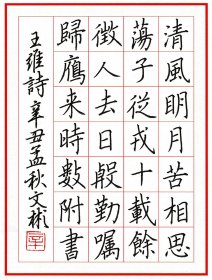 清風明月苦相思
蕩子從戎十載餘
徵人去日殷勤囑
歸鴈来時數附書
王維詩辛丑孟秋文彬